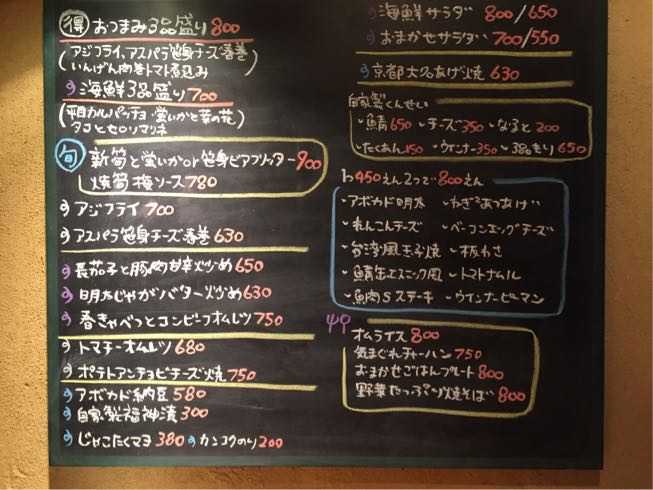 得 おつまみ3品盛り 800
(アジフライ、アスパラ笹身チーズ春巻
いんげん肉巻トマト煮込み)
海鮮3品盛り 700
(平目カルパッチョ・蛍いかと菜の花
タコとセロリマリネ)
旬 新筍と蛍いかor笹身ビアフリッター 900
焼筍 梅ソース 780
アジフライ 700
アスパラ笹身チーズ春巻 630
長茄子と豚肉甘辛炒め 650
明太じゃがバター炒め 630
春きゃべつとコンビーフオムレツ 750
トマチーオムレツ 680
ポテトアンチョビチーズ焼 750
アボカド納豆 580
自家製福神漬 300
じゃこたくマヨ 380 カンコクのり 200
海鮮サラダ 800/650
おまかせサラダ 700/550
京都大名あげ焼 630
自家製くんせい
鯖 650 チーズ 350 なると 200
たくあん 150 ウインナー 350 3品もり 650
450えん 2つで800えん
アボカド明太 ねぎあつあげ
れんこんチーズ ベーコンエッグチーズ
台湾風玉子焼 板わさ
鯖缶エスニック風 トマトナムル
魚肉Sステーキ ウインナーピーマン
オムライス 800
気まぐれチャーハン 750
おまかせごはんプレート 800
野菜たっぷり焼そば 800